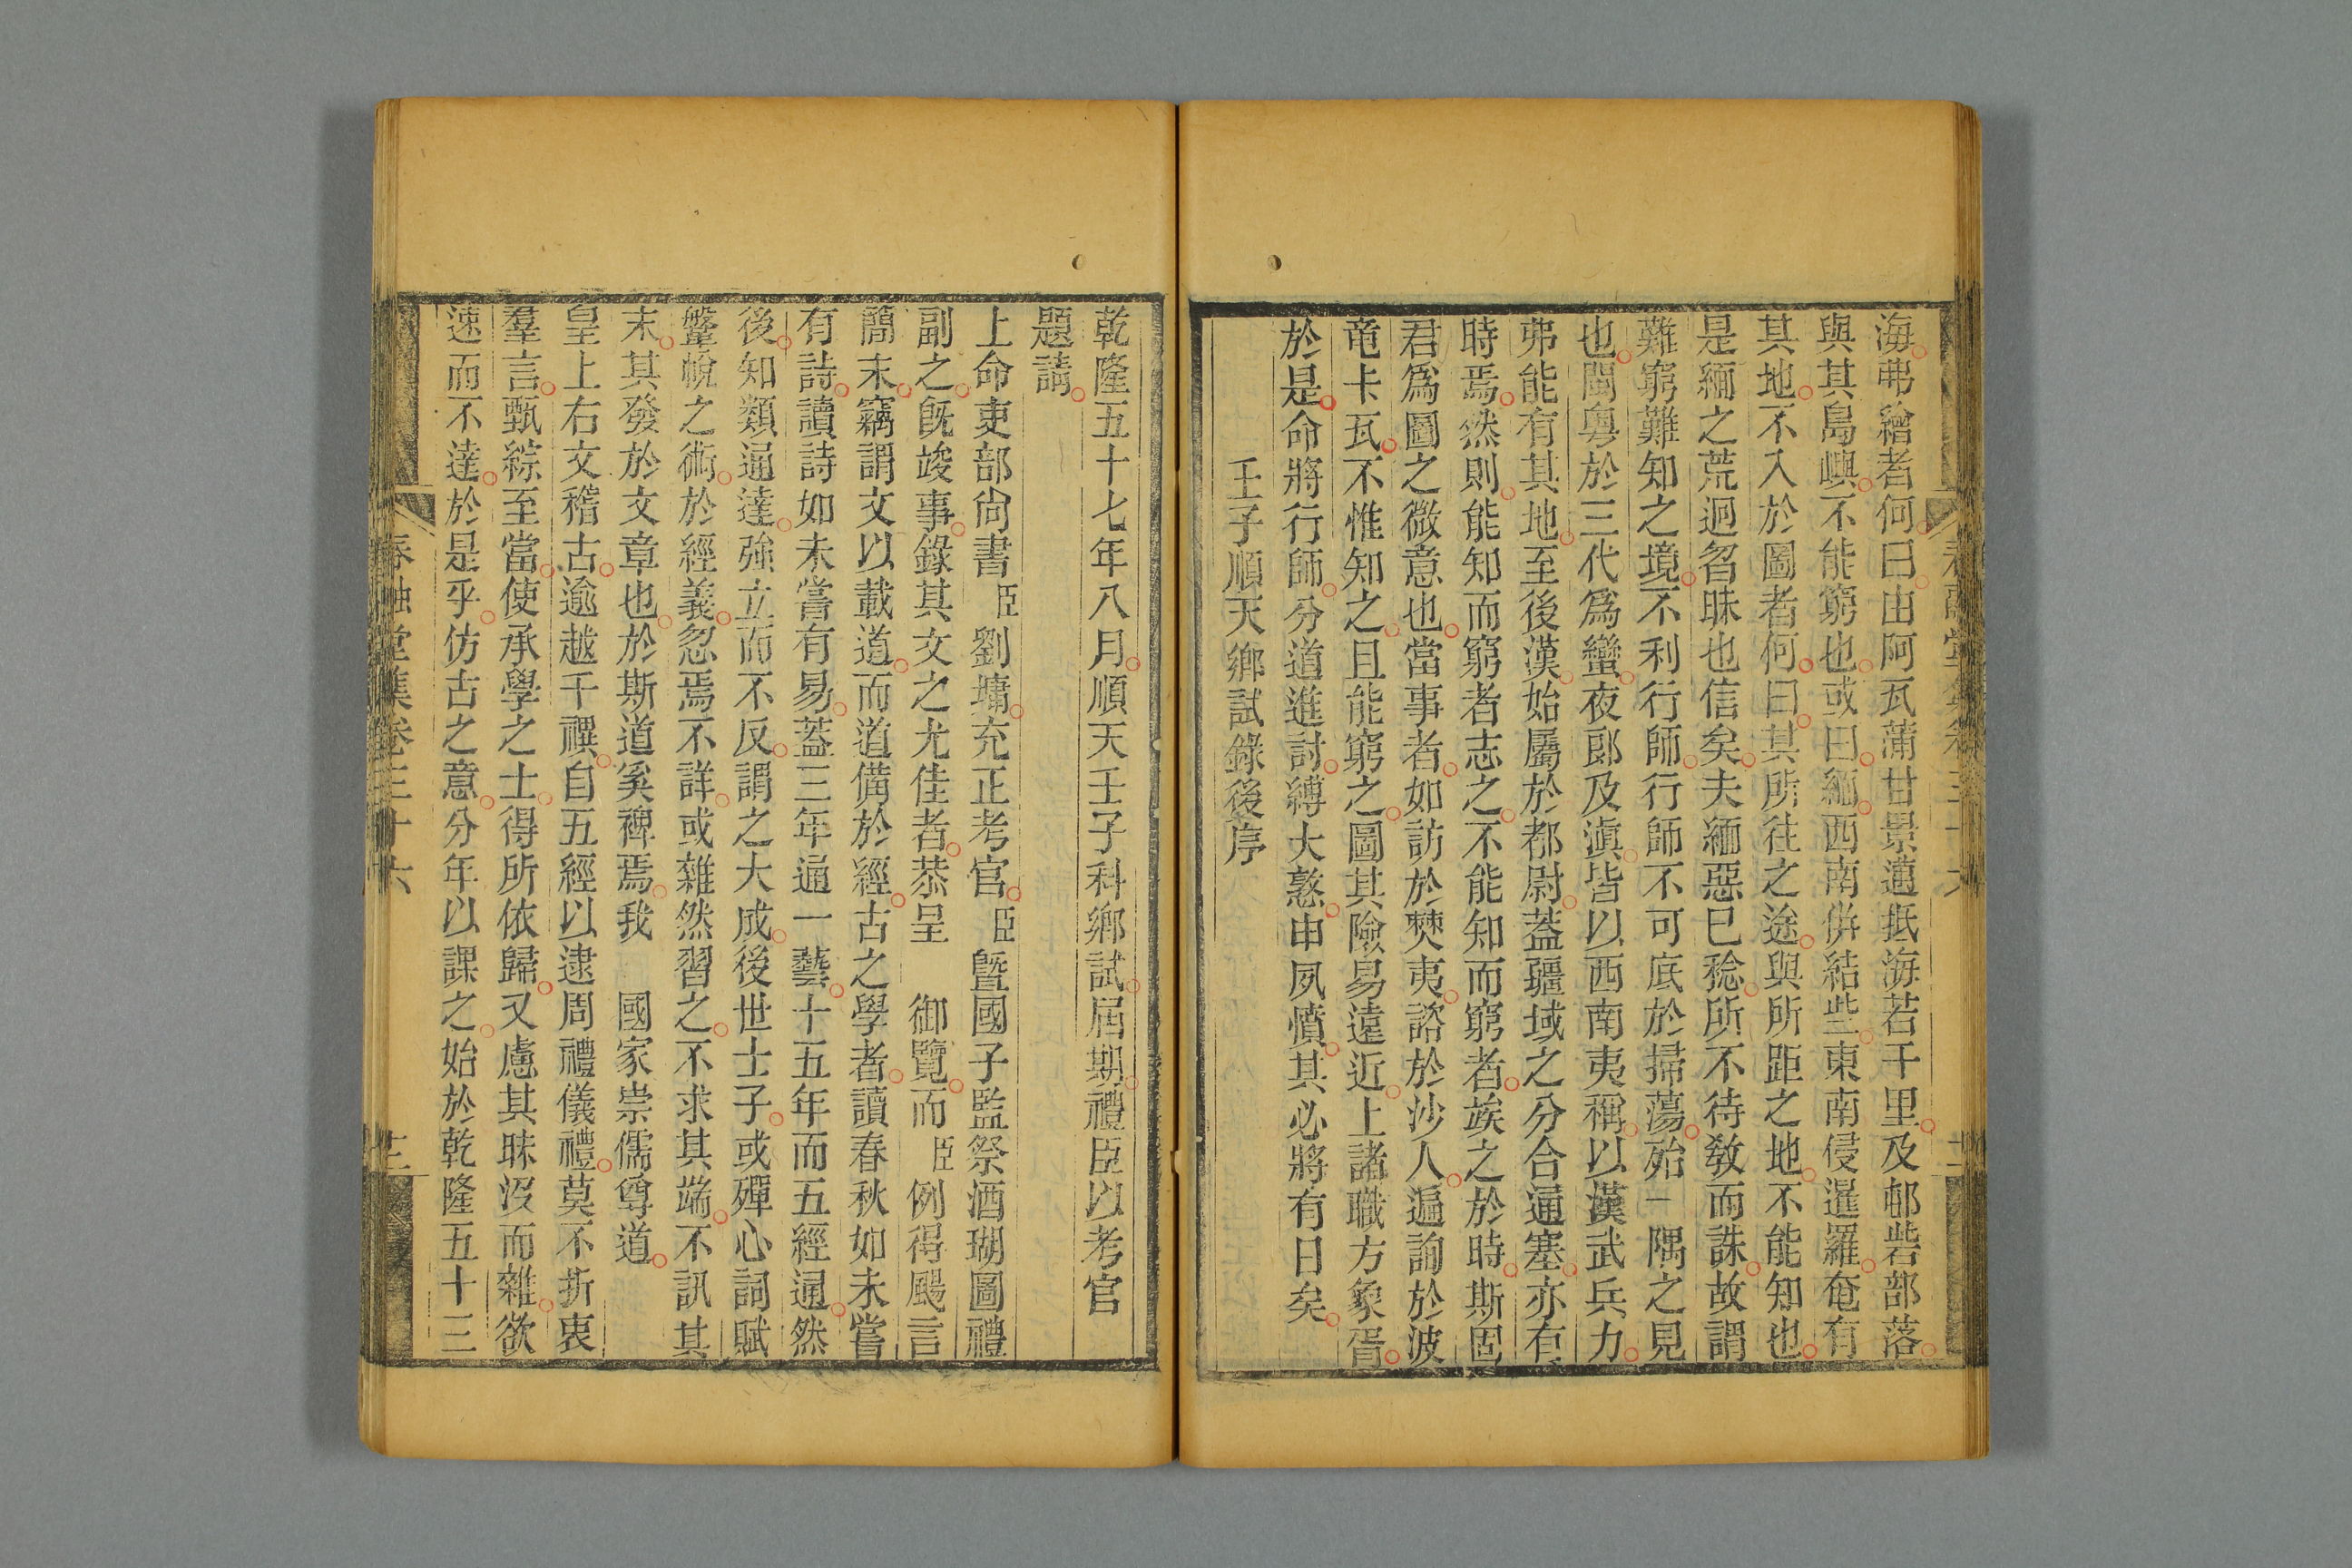 海弗繪者何曰由阿瓦蒲甘景邁抵海若干里及邨砦部落
與其島嶼不能窮也或曰緬西南併結些東南侵暹羅奄有
其地不入於圖者何曰其所往之途與所距之地不能知也
是緬之荒迥曶昧也信矣夫緬惡已稔所不待敎而誅故謂
難窮難知之境不利行師行師不可底於掃蕩殆一隅之見
也閩粵於三代爲蠻夜郎及滇皆以西南夷稱以漢武兵力
弗能有其地至後漢始屬於都尉葢疆域之分合通塞亦有
時焉然則能知而窮者志之不能知而窮者竢之於時斯固
君爲圖之微意也當事者如訪於僰夷諮於沙人遍詢於波
竜卡瓦不惟知之且能窮之圖其險易遠近上諸職方象胥
於是命將行師分道進討縛大憝申夙憤其必將有日矣
壬子順天鄉試錄後序
乾隆五十七年八月順天壬子科鄉試屆期禮臣以考官
題請
上命吏部尙書臣劉墉充正考官臣曁國子監祭酒瑚圖禮
副之旣竣事錄其文之尤佳者恭呈 御覽而臣例得颺言
簡末竊謂文以載道而道備於經古之學者讀春秋如未嘗
有詩讀詩如未嘗有易葢三年通一藝十五年而五經通然
後知類通達強立而不反謂之大成後世士子或殫心詞賦
鞶帨之術於經義忽焉不詳或雜然習之不求其端不訊其
末其發於文章也於斯道奚裨焉我 國家崇儒尊道
皇上右文稽古逾越千禩自五經以逮周禮儀禮莫不折衷
羣言甄綜至當使承學之士得所依歸又慮其昧沒而雜欲
速而不達於是乎仿古之意分年以課之始於乾隆五十三
春融堂集卷三十六 十三